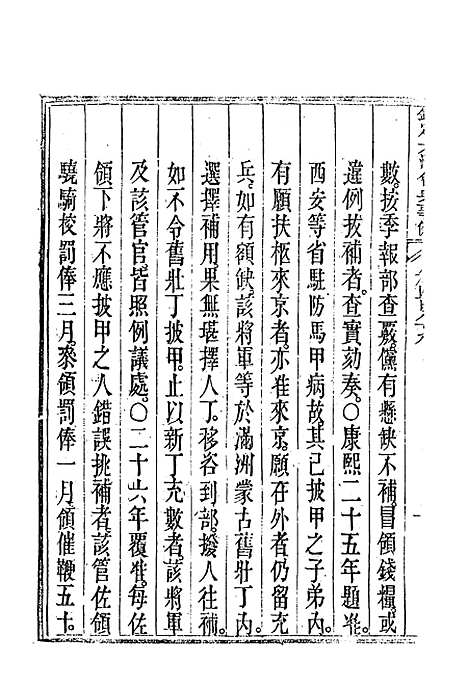 數按季報部查覈儻有懸缺不補冒領錢糧或
違例拔補者查實刻奏○康熙二十五年題准
西安等省駐防馬甲病故其已披甲之子弟內
有願扶柩來京者亦准來京願在外者仍留充
兵如有額缺該將軍等於滿洲蒙古舊壯丁內
選擇補用果無堪擇人丁移咨到部撥人往補
如不令舊壯丁披甲止以新丁充數者該將軍
及該管官皆照例議處○二十六年覆准每佐
領下將不應披甲之人錯誤挑補者該管佐領
驍騎校罰俸三月叅領罰俸一月領催鞭五十